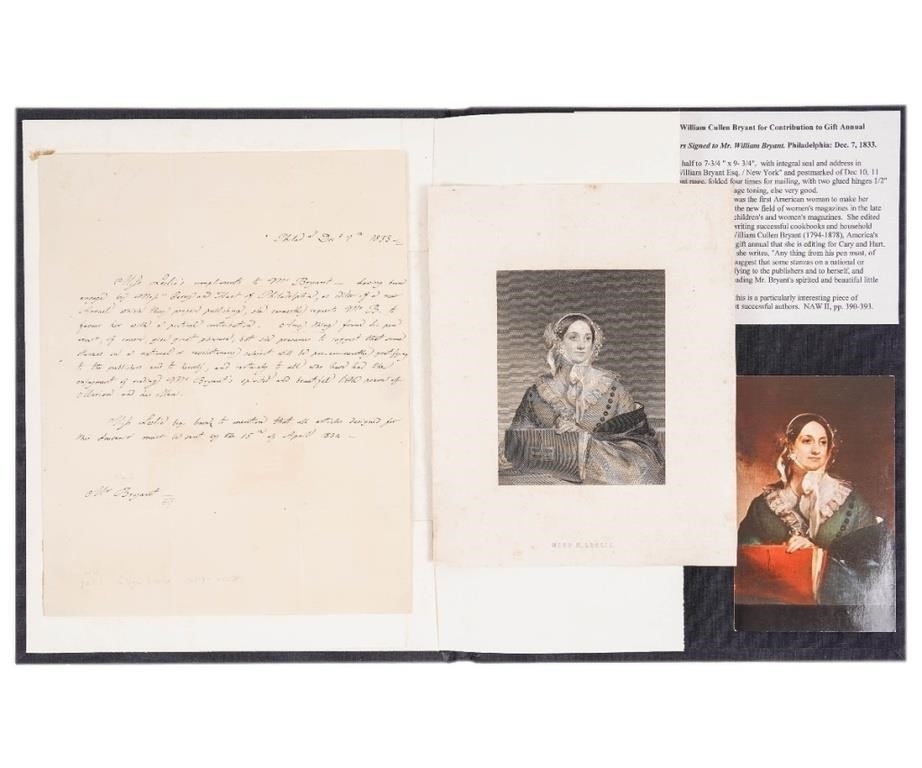 Philad.ª Decʳ 7ᵗʰ 1833
Miss Leslie's compliments to Mr Bryant — having been
engaged by Messrs Carey and Hart of Philadelphia, as editor of a new
Annual which they propose publishing, she earnestly requests Mr B. to
favour her with a poetical contribution. Any thing from his pen
must, of course, give great pleasure, but she presumes to suggest that some
stanzas on a national or revolutionary subject will be pre-eminently gratifying
to the publishers and to herself, and certainly to all who have had the
enjoyment of reading Mr Bryant's spirited and beautiful little
Marion and his Men.
Miss Leslie begs leave to mention that all articles designed for
this Annual must be sent by the 15th of April 1834 —
Mr Bryant
MISS E. LESLIE
William Cullen Bryant for Contribution to Gift Annual
rs Signed to Mr. William Bryant. Philadelphia: Dec. 7, 1833.
half to 7-3/4 " x 9- 3/4", with integral seal and address in
William Bryant Esq. / New York" and postmarked of Dec 10, 11
page, folded four times for mailing, with two glued hinges 1/2"
age toning, else very good.
was the first American woman to make her
the new field of women's magazines in the late
children's and women's magazines. She edited
writing successful cookbooks and household
William Cullen Bryant (1794-1878), America's
gift annual that she is editing for Cary and Hart.
she writes, "Any thing from his pen must, of
suggest that some stanzas on a national or
fying to the publishers and to herself, and
ading Mr. Bryant's spirited and beautiful little
this is a particularly interesting piece of
st successful authors. NAW II, pp. 390-393.